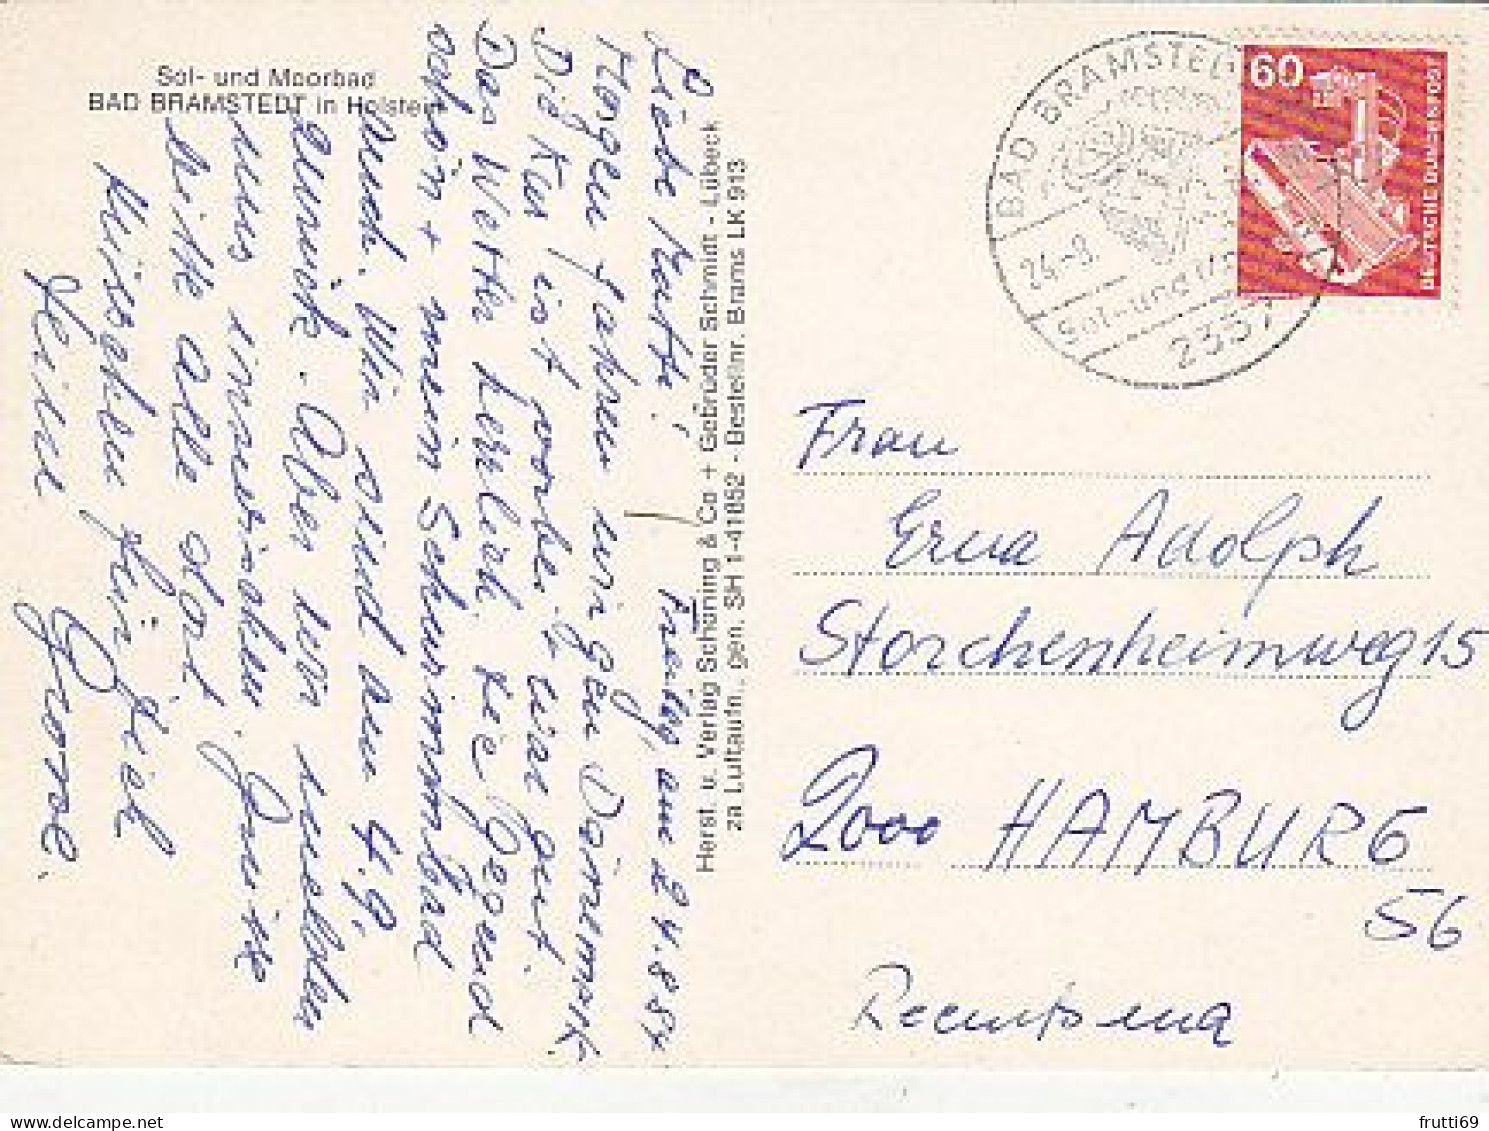 Sol- und Moorbad
BAD BRAMSTEDT in Holstein
Freitag, am 24.8.84
Liebe Mutti!
Morgen fahren wir gen Dänemark.
Die Kur ist vorbei. War gut.
Das Wetter herrlich. Die Gegend
schön + mein Schwimmbad
auch. Wir sind am 4.9.
zurück. Aber wir melden
uns inzwischen. Grüße
bitte alle dort.
Küsschen für Dich
Deine
Herst. u. Verlag Schöning & Co + Gebrüder Schmidt - Lübeck
za Luftaufn., gen. SH 1-41852 - Bestellnr. Brams LK 913
BAD BRAMSTEDT
24.-8.
Sol- und
2357
60
DEUTSCHE BUNDESPOST
Frau
Erna Adolph
Storchenheimweg 15
2000 HAMBURG
56